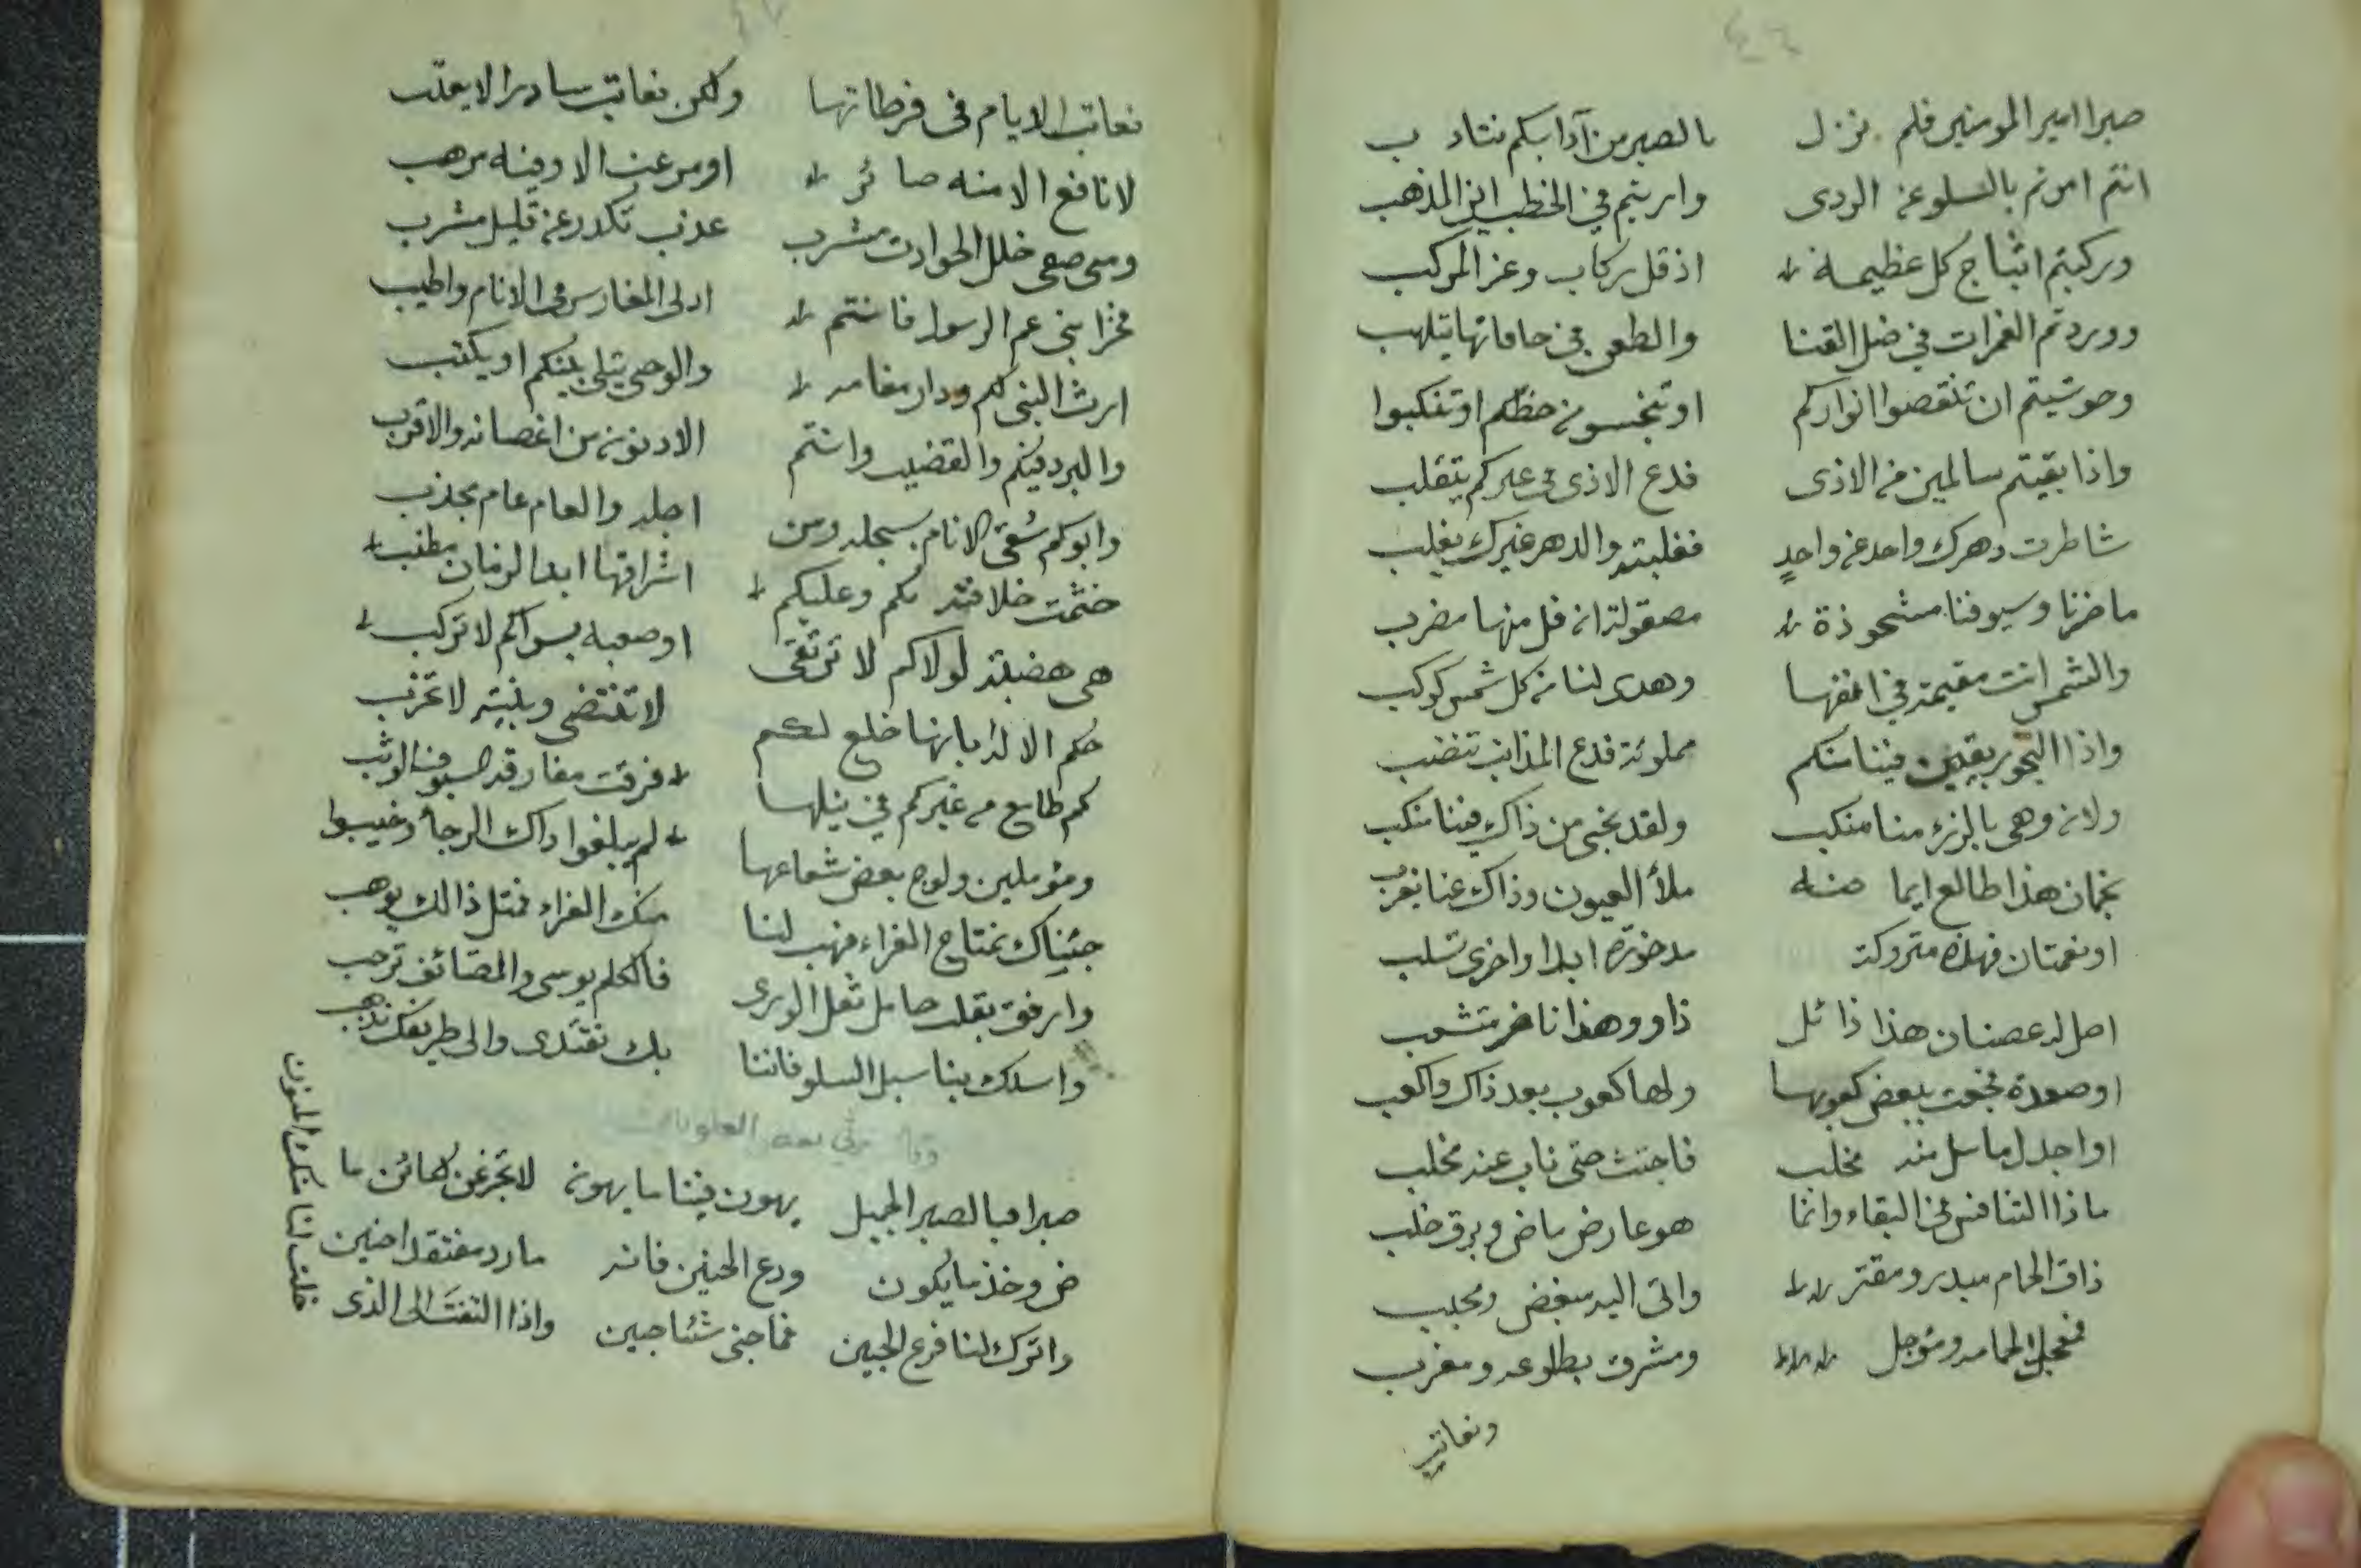 صبرا امير المومنين فلم نزل بالصبر من آدابكم نتادب
انتم امرتم بالسلو عن الردى واريتم في الخطب اين المذهب
وركبتم اثباج كل عظيمة اذ قل ركاب وعز المركب
ووردتم الغمرات في ضل القنا والطعن في حافاتها يتلهب
وحوشيتم ان تنقصوا انواركم او تبخسون حظكم او تنكبوا
واذا بقيتم سالمين من الاذى فدع الاذى في غيركم يتقلب
شاطرت دهرك واحد عن واحدٍ فغلبته والدهر غيرك يغلب
ما ضرنا وسيوفنا مشحوذة مصقولة ان فل منها مضرب
والشمس انت مقيمة في افقها وهدى لنا من كل شمس كوكب
واذا البحور بقين فينا منكم مملوئة فدع المذانب تنضب
ولان وهى بالرزء منا منكب ولقد نجى من ذاك فينا منكب
نجمان هذا طالع ايما ضنه ملأ العيون وذاك عنا يغرب
او نعمتان فهذه متروكة مدخورة ابدا واخرى تسلب
اصل له غصنان هذا ذائل ذاو وهذا ناضر متشعب
او صعدة فجعت ببعض كعوبها ولها كعوب بعد ذاك واكعب
او اجدل ما سل منه مخلب فاجتث حتى ناب عنه مخلب
ماذا التنافس في البقاء وانما هو عارض ماض وبرق خلب
ذاق الحمام مبدر ومقتر واتى اليه مبغض ومحبب
فمعجل لحمامه ومؤجل ومشرق بطلوعه ومغرب
ونعاتب
نعاتب الايام في فرطاتها ولكن نعاتب سادرا لا يعتب
لا نافع الا منه صائر او مرغب الا وفيه مرهب
ومتى صفى خلل الحوادث مشرب عذب تكدر عن قليل مشرب
فخرا بنى عم الرسول فانتم ادلى المغارس في الانام واطيب
ارث النبى لكم ودار مقامه والوحى يتلى بينكم او يكتب
والبرد فيكم والقضيب وانتم الادنون من اغصانه والاقرب
وابوكم سُقى الانام بسجله ومن اجله والعام عام مجدب
ختمت خلافته بكم وعليكم اشراقها ابدا لزمان مطنب
هي هضبة لولاكم لا ترتقى او صعبة بسواكم لا تركب
حكم الاله بانها خلع لكم لا تنتضى وبنية لا تخرب
كم طامع من غيركم في نيلها فرقت مفارقه السيوف الوثب
ومؤملين ولوج بعض شعاعها لم يبلغوا ذاك الرجأ وخيبوا
جئناك نمتاح العزاء فهب لنا منك العزاء فمثل ذالك يوهب
وارفق بقلب حامل ثقل الورى فالكلم يوسى والمضائق ترحب
واسلك بنا سبل السلو فاننا بك نقتدى والى طريقك نذهب
وقال يرثي بعض العلويات
صبرا فبالصبر الجميل يهون فينا ما يهون لا تجزعن لكائن ما
ض وخذ ما يكون ودع الحنين فانه ما رد مفتقدا حنين
واترك لنا فرع الجبين فما جنى شئا جبين واذا التفتَ الى الذى
خلت لنا منك المنون